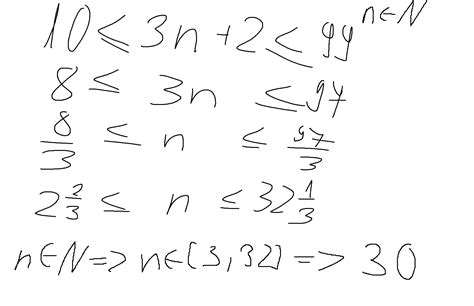 10 ≤ 3n + 2 ≤ 99 n∈N
8 ≤ 3n ≤ 97
8/3 ≤ n ≤ 97/3
2 2/3 ≤ n ≤ 32 1/3
n∈N => n∈[3,32] => 30